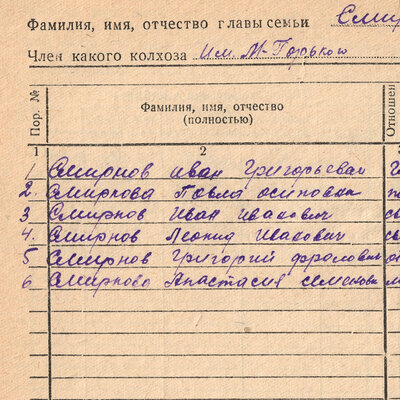 Фамилия, имя, отчество главы семьи Смир
Член какого колхоза им. М-Горького
Пор. №
Фамилия, имя, отчество
(полностью)
Отношен
1 2 3
1 Смирнов Иван Григорьевич
2. Смирнова Павла Осиповна
3 Смирнов Иван Иванович
4. Смирнов Леонид Иванович
5 Смирнов Григорий Фролович
6 Смирнова Анастасия Семеновн